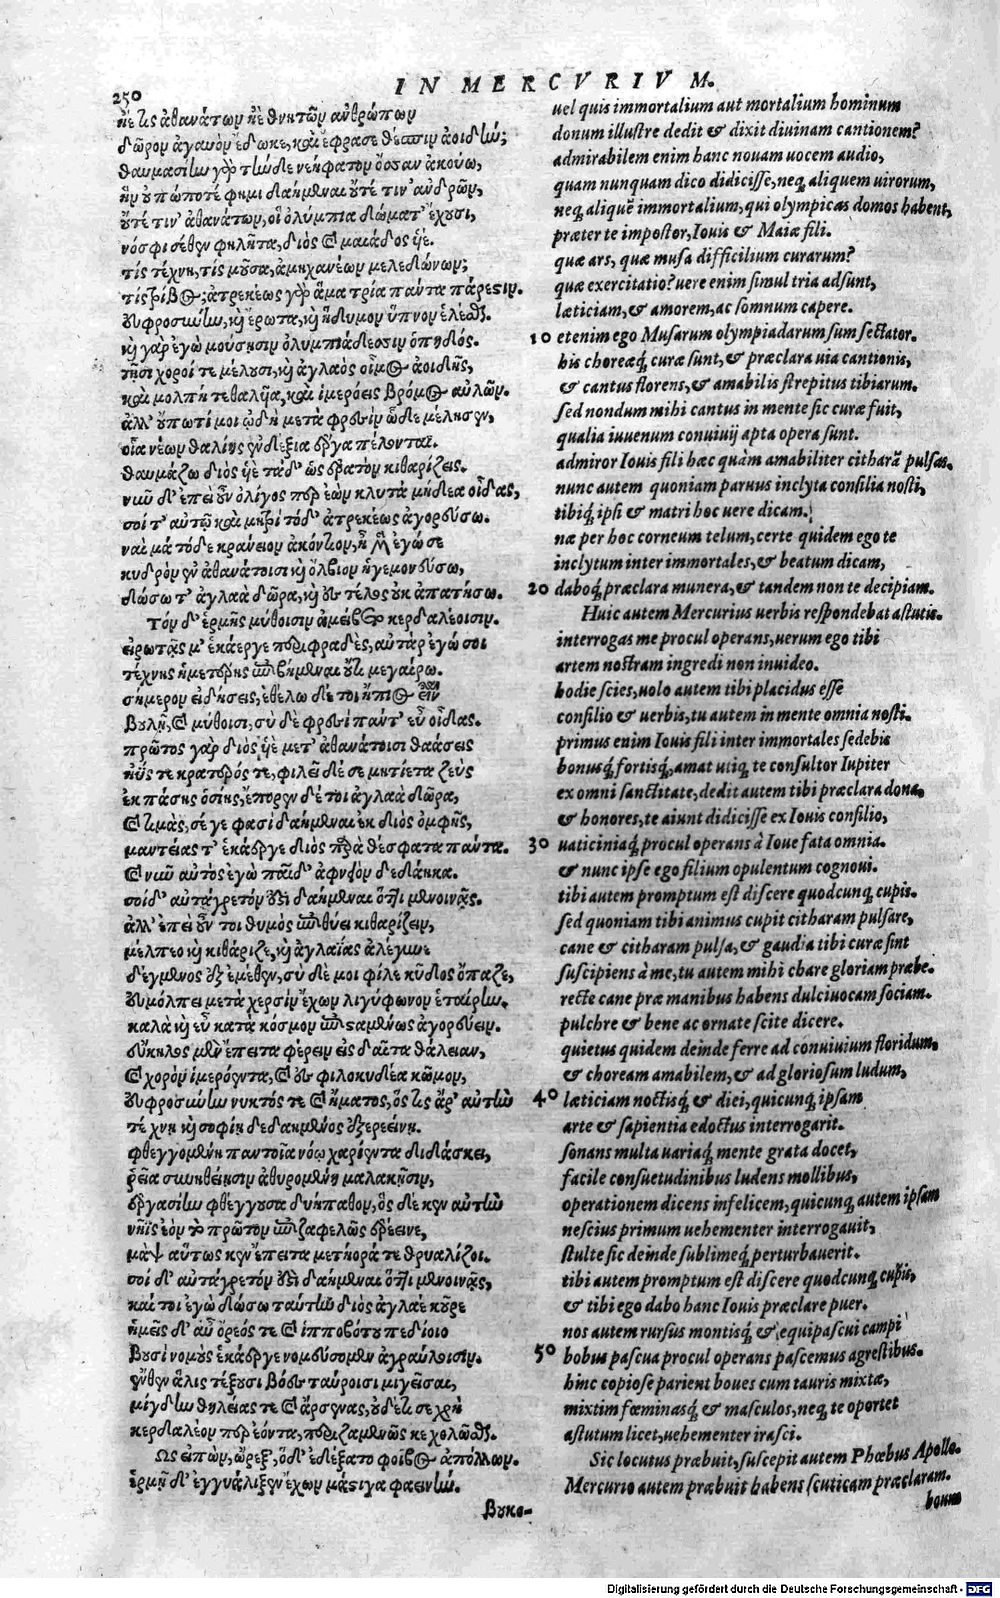 250
IN MERCVRIVM.
ἠέ τις ἀθανάτων ἠὲ θνητῶν ἀνθρώπων
δῶρον ἀγαυὸν ἔδωκε, καὶ ἔφρασε θέσπιν ἀοιδήν;
θαυμασίην γὰρ τήνδε νεήφατον ὄσσαν ἀκούω,
ἣν οὔπώποτέ φημι δαήμεναι οὔτέ τιν' ἀνδρῶν,
οὔτέ τιν' ἀθανάτων, οἳ ὀλύμπια δώματ' ἔχουσι,
νόσφι σέθεν φηλῆτα, διὸς καὶ μαιάδος υἱέ.
τίς τέχνη, τίς μοῦσα, ἀμηχανέων μελεδώνων;
τίς τρίβος; ἀτρεκέως γὰρ ἅμα τρία πάντα πάρεστιν.
εὐφροσύνην, καὶ ἔρωτα, καὶ ἥδυμον ὕπνον ἑλέσθαι.
καὶ γὰρ ἐγὼ μούσῃσιν ὀλυμπιάδεσσιν ὀπηδός.
τῇσι χοροί τε μέλουσι, καὶ ἀγλαὸς οἶμος ἀοιδῆς,
καὶ μολπὴ τεθαλυῖα, καὶ ἱμερόεις βρόμος αὐλῶν.
ἀλλ' οὔπωτί μοι ᾠδὴ μετὰ φρεσὶν ὧδε μέλησεν,
οἷα νέων θαλίῃς ἐνδέξια ἔργα πέλονται.
θαυμάζω διὸς υἱὲ τάδ' ὡς ἐρατὸν κιθαρίζεις.
νῦν δ' ἐπεὶ οὖν ὀλίγος περ ἐὼν κλυτὰ μήδεα οἶδας,
σοί τ' αὐτῷ καὶ μητρὶ τόδ' ἀτρεκέως ἀγορεύσω.
ναὶ μά τόδε κράνειον ἀκόντιον, ἦ μὲν ἐγώ σε
κυδρὸν ἐν ἀθανάτοισι καὶ ὄλβιον ἡγεμονεύσω,
δώσω τ' ἀγλαὰ δῶρα, καὶ ἐς τέλος οὐκ ἀπατήσω.
Τὸν δ' ἑρμῆς μύθοισιν ἀμείβετο κερδαλέοισιν.
εἰρωτᾷς μ' ἑκάεργε περιφραδὲς, αὐτὰρ ἐγώ σοι
τέχνης ἡμετέρης ἐπιβήμεναι οὔτι μεγαίρω.
σήμερον εἰδήσεις, ἐθέλω δέ τοι ἤπιος εἶναι
βουλῇ, καὶ μύθοισι, σὺ δὲ φρεσὶ πάντ' εὖ οἶδας.
πρῶτος γὰρ διὸς υἱὲ μετ' ἀθανάτοισι θαάσεις
ἠΰς τε κρατερός τε, φιλεῖ δέ σε μητίετα ζεὺς
ἐκ πάσης ὁσίης, ἔπορεν δέ τοι ἀγλαὰ δῶρα,
καὶ τιμὰς, σέ γε φασὶ δαήμεναι ἐκ διὸς ὀμφῆς,
μαντείας τ' ἑκάεργε διὸς παρὰ θέσφατα πάντα.
καὶ νῦν αὐτὸς ἐγὼ παῖδ' ἀφνειὸν δεδάηκα.
σοὶ δ' αὐτάγρετόν ἐστι δαήμεναι ὅττι μενοινᾷς.
ἀλλ' ἐπεὶ οὖν τοι θυμὸς ἐπιθύει κιθαρίζειν,
μέλπεο καὶ κιθάριζε, καὶ ἀγλαΐας ἀλέγυνε
δέγμενος ἐξ ἐμέθεν, σὺ δὲ μοι φίλε κῦδος ὄπαζε,
εὐμόλπει μετὰ χερσὶν ἔχων λιγύφωνον ἑταίρην.
καλὰ καὶ εὖ κατὰ κόσμον ἐπισταμένως ἀγορεύειν.
εὔκηλος μὲν ἔπειτα φέρειν εἰς δαῖτα θάλειαν,
καὶ χορὸν ἱμερόεντα, καὶ ἐς φιλοκυδέα κῶμον,
εὐφροσύνην νυκτός τε καὶ ἤματος, ὅς τις ἄρ' αὐτὴν
τέχνῃ καὶ σοφίῃ δεδαημένος ἐξερεείνῃ.
φθεγγομένη παντοῖα νόῳ χαρίεντα διδάσκει,
ῥεῖα συνηθείῃσιν ἀθυρομένη μαλακῇσιν,
ἐργασίην φθέγγουσα δυήπαθον, ὃς δέ κεν αὐτὴν
νῆϊς ἐὸν τὸ πρῶτον ἐπιζαφελῶς ἐρεείνε,
μὰψ αὔτως κεν ἔπειτα μετήορά τε θρυαλίζοι.
σοὶ δ' αὐτάγρετόν ἐστι δαήμεναι ὅττι μενοινᾷς,
καί τοι ἐγὼ δώσω ταύτην διὸς ἀγλαὲ κοῦρε
ἡμεῖς δ' αὖ ὄρεός τε καὶ ἱπποβότου πεδίοιο
βουσὶ νομοὺς ἑκάεργε νομεύσομεν ἀγραύλοισιν.
ἔνθεν ἅλις τέξουσι βόες ταύροισι μιγεῖσαι,
μίγδην θηλείας τε καὶ ἄρσενας, οὐδέ τί σε χρὴ
κερδαλέον περ ἐόντα, περιζαμενῶς κεχολῶσθαι.
Ως εἰπὼν, ὤρεξ', ὅδ' ἐδέξατο φοῖβος ἀπόλλων.
ἑρμῇ δ' ἐγγυάλιξεν ἔχων μάστιγα φαεινήν.
βουκο-
uel quis immortalium aut mortalium hominum
donum illustre dedit & dixit diuinam cantionem?
admirabilem enim hanc nouam uocem audio,
quam nunquam dico didicisse, neq; aliquem uirorum,
neq; aliquẽ immortalium, qui olympicas domos habent,
præter te impostor, Iouis & Maiæ fili.
quæ ars, quæ musa difficilium curarum?
quæ exercitatio? uere enim simul tria adsunt,
læticiam, & amorem, ac somnum capere.
10 etenim ego Musarum olympiadarum sum sectator.
his choreæq; curæ sunt, & præclara uia cantionis,
& cantus florens, & amabilis strepitus tibiarum.
sed nondum mihi cantus in mente sic curæ fuit,
qualia iuuenum conuiuij apta opera sunt.
admiror Iouis fili hæc quàm amabiliter citharã pulsas.
nunc autem quoniam paruus inclyta consilia nosti,
tibiq; ipsi & matri hoc uere dicam.
næ per hoc corneum telum, certe quidem ego te
inclytum inter immortales, & beatum dicam,
20 daboq; præclara munera, & tandem non te decipiam.
Huic autem Mercurius uerbis respondebat astutis.
interrogas me procul operans, uerum ego tibi
artem nostram ingredi non inuideo.
hodie scies, uolo autem tibi placidus esse
consilio & uerbis, tu autem in mente omnia nosti.
primus enim Iouis fili inter immortales sedebis
bonusq; fortisq;, amat utiq; te consultor Iupiter
ex omni sanctitate, dedit autem tibi præclara dona,
& honores, te aiunt didicisse ex Iouis consilio,
30 uaticiniaq; procul operans à Ioue fata omnia.
& nunc ipse ego filium opulentum cognoui.
tibi autem promptum est discere quodcunq; cupis.
sed quoniam tibi animus cupit citharam pulsare,
cane & citharam pulsa, & gaudia tibi curæ sint
suscipiens à me, tu autem mihi chare gloriam præbe.
recte cane præ manibus habens dulciuocam sociam.
pulchre & bene ac ornate scite dicere.
quietus quidem deinde ferre ad conuiuium floridum,
& choream amabilem, & ad gloriosum ludum,
40 læticiam noctisq; & diei, quicunq; ipsam
arte & sapientia edoctus interrogarit.
sonans multa uariaq; mente grata docet,
facile consuetudinibus ludens mollibus,
operationem dicens infelicem, quicunq; autem ipsam
nescius primum uehementer interrogauit,
stulte sic deinde sublimeq; perturbauerit.
tibi autem promptum est discere quodcunq; cupis,
& tibi ego dabo hanc Iouis præclare puer.
nos autem rursus montisq; & equipascui campi
50 bobus pascua procul operans pascemus agrestibus.
hinc copiose parient boues cum tauris mixtæ,
mixtim fœminasq; & masculos, neq; te oportet
astutum licet, uehementer irasci.
Sic locutus præbuit, suscepit autem Phœbus Apollo.
Mercurio autem præbuit habens scuticam præclaram.
boum
Digitalisierung gefördert durch die Deutsche Forschungsgemeinschaft - DFG